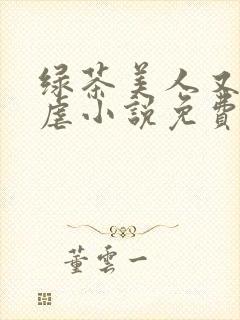 绿茶美人又
虐小説免費
董雲一